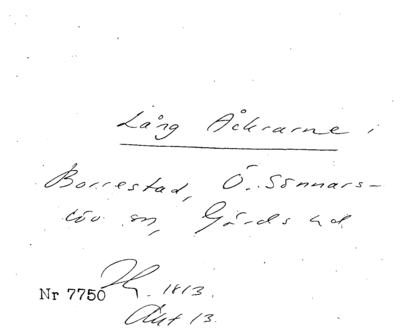 Lång Åckrarne i
Borrestad, Ö. Sönnars-
löv sn, Gärds hd
Nr 7750 1813.
Akt 13.